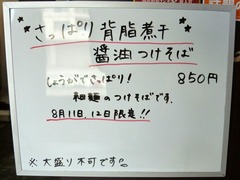 さっぱり背脂煮干
醤油つけそば
しょうがでさっぱり! 850円
細麺のつけそばです。
8月11日、12日限定!!
※大盛り不可です。